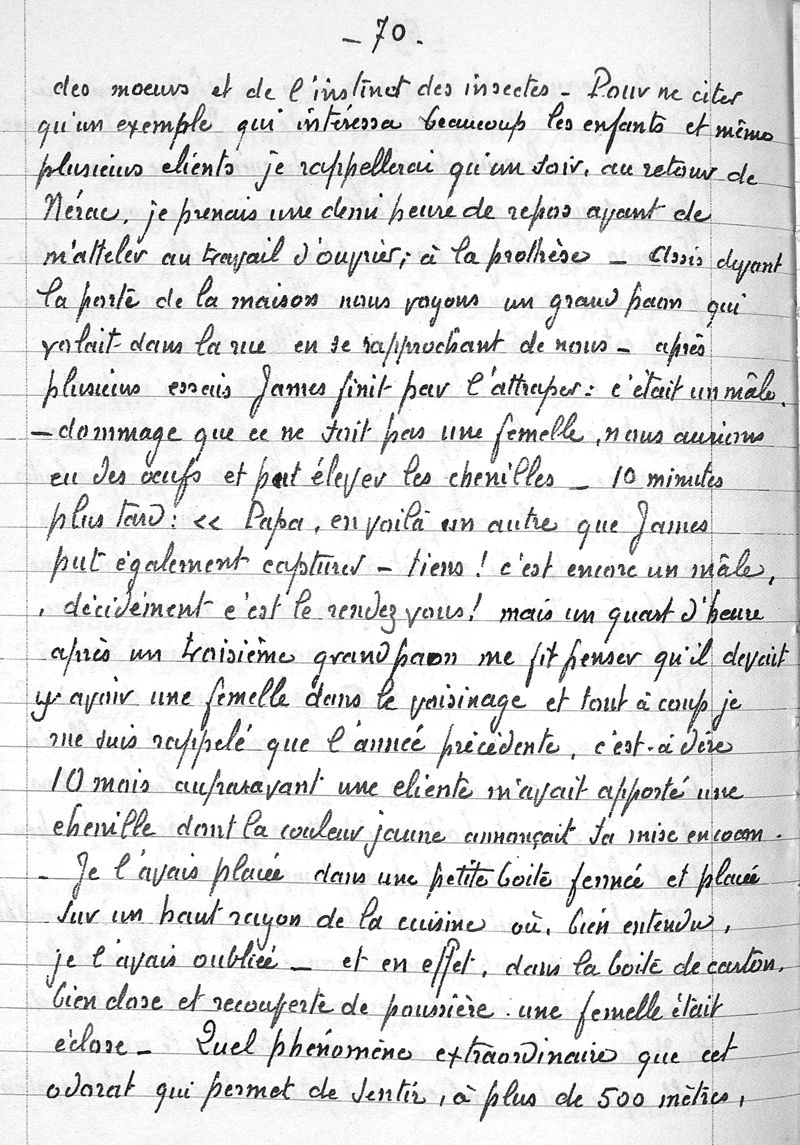 - 70.
des moeurs et de l'instinct des insectes - Pour ne citer
qu'un exemple qui intéressa beaucoup les enfants et même
plusieurs clients je rappellerai qu'un soir, au retour de
Nérac, je prenais une demi heure de repos avant de
m'atteler au travail d'ouvrier, à la prothèse - Assis devant
la porte de la maison nous voyons un grand paon qui
volait dans la rue en se rapprochant de nous - après
plusieurs essais James finit par l'attraper : c'était un mâle.
- dommage que ce ne soit pas une femelle, nous aurions
eu des oeufs et put élever les chenilles - 10 minutes
plus tard : << Papa, en voilà un autre que James
put également capturer - tiens ! c'est encore un mâle,
, décidément c'est le rendez vous ! mais un quart d'heure
après un troisième grand paon me fit penser qu'il devait
y avoir une femelle dans le voisinage et tout à coup je
me suis rappelé que l'année précédente, c'est-à dire
10 mois auparavant une cliente m'avait apporté une
chenille dont la couleur jaune annonçait sa mise en cocon.
- Je l'avais placée dans une petite boite fermée et placée
sur un haut rayon de la cuisine où, bien entendu,
je l'avais oubliée - et en effet, dans la boite de carton,
bien close et recouverte de poussière. une femelle était
éclose - Quel phénomène extraordinaire que cet
odorat qui permet de sentir, à plus de 500 mètres,